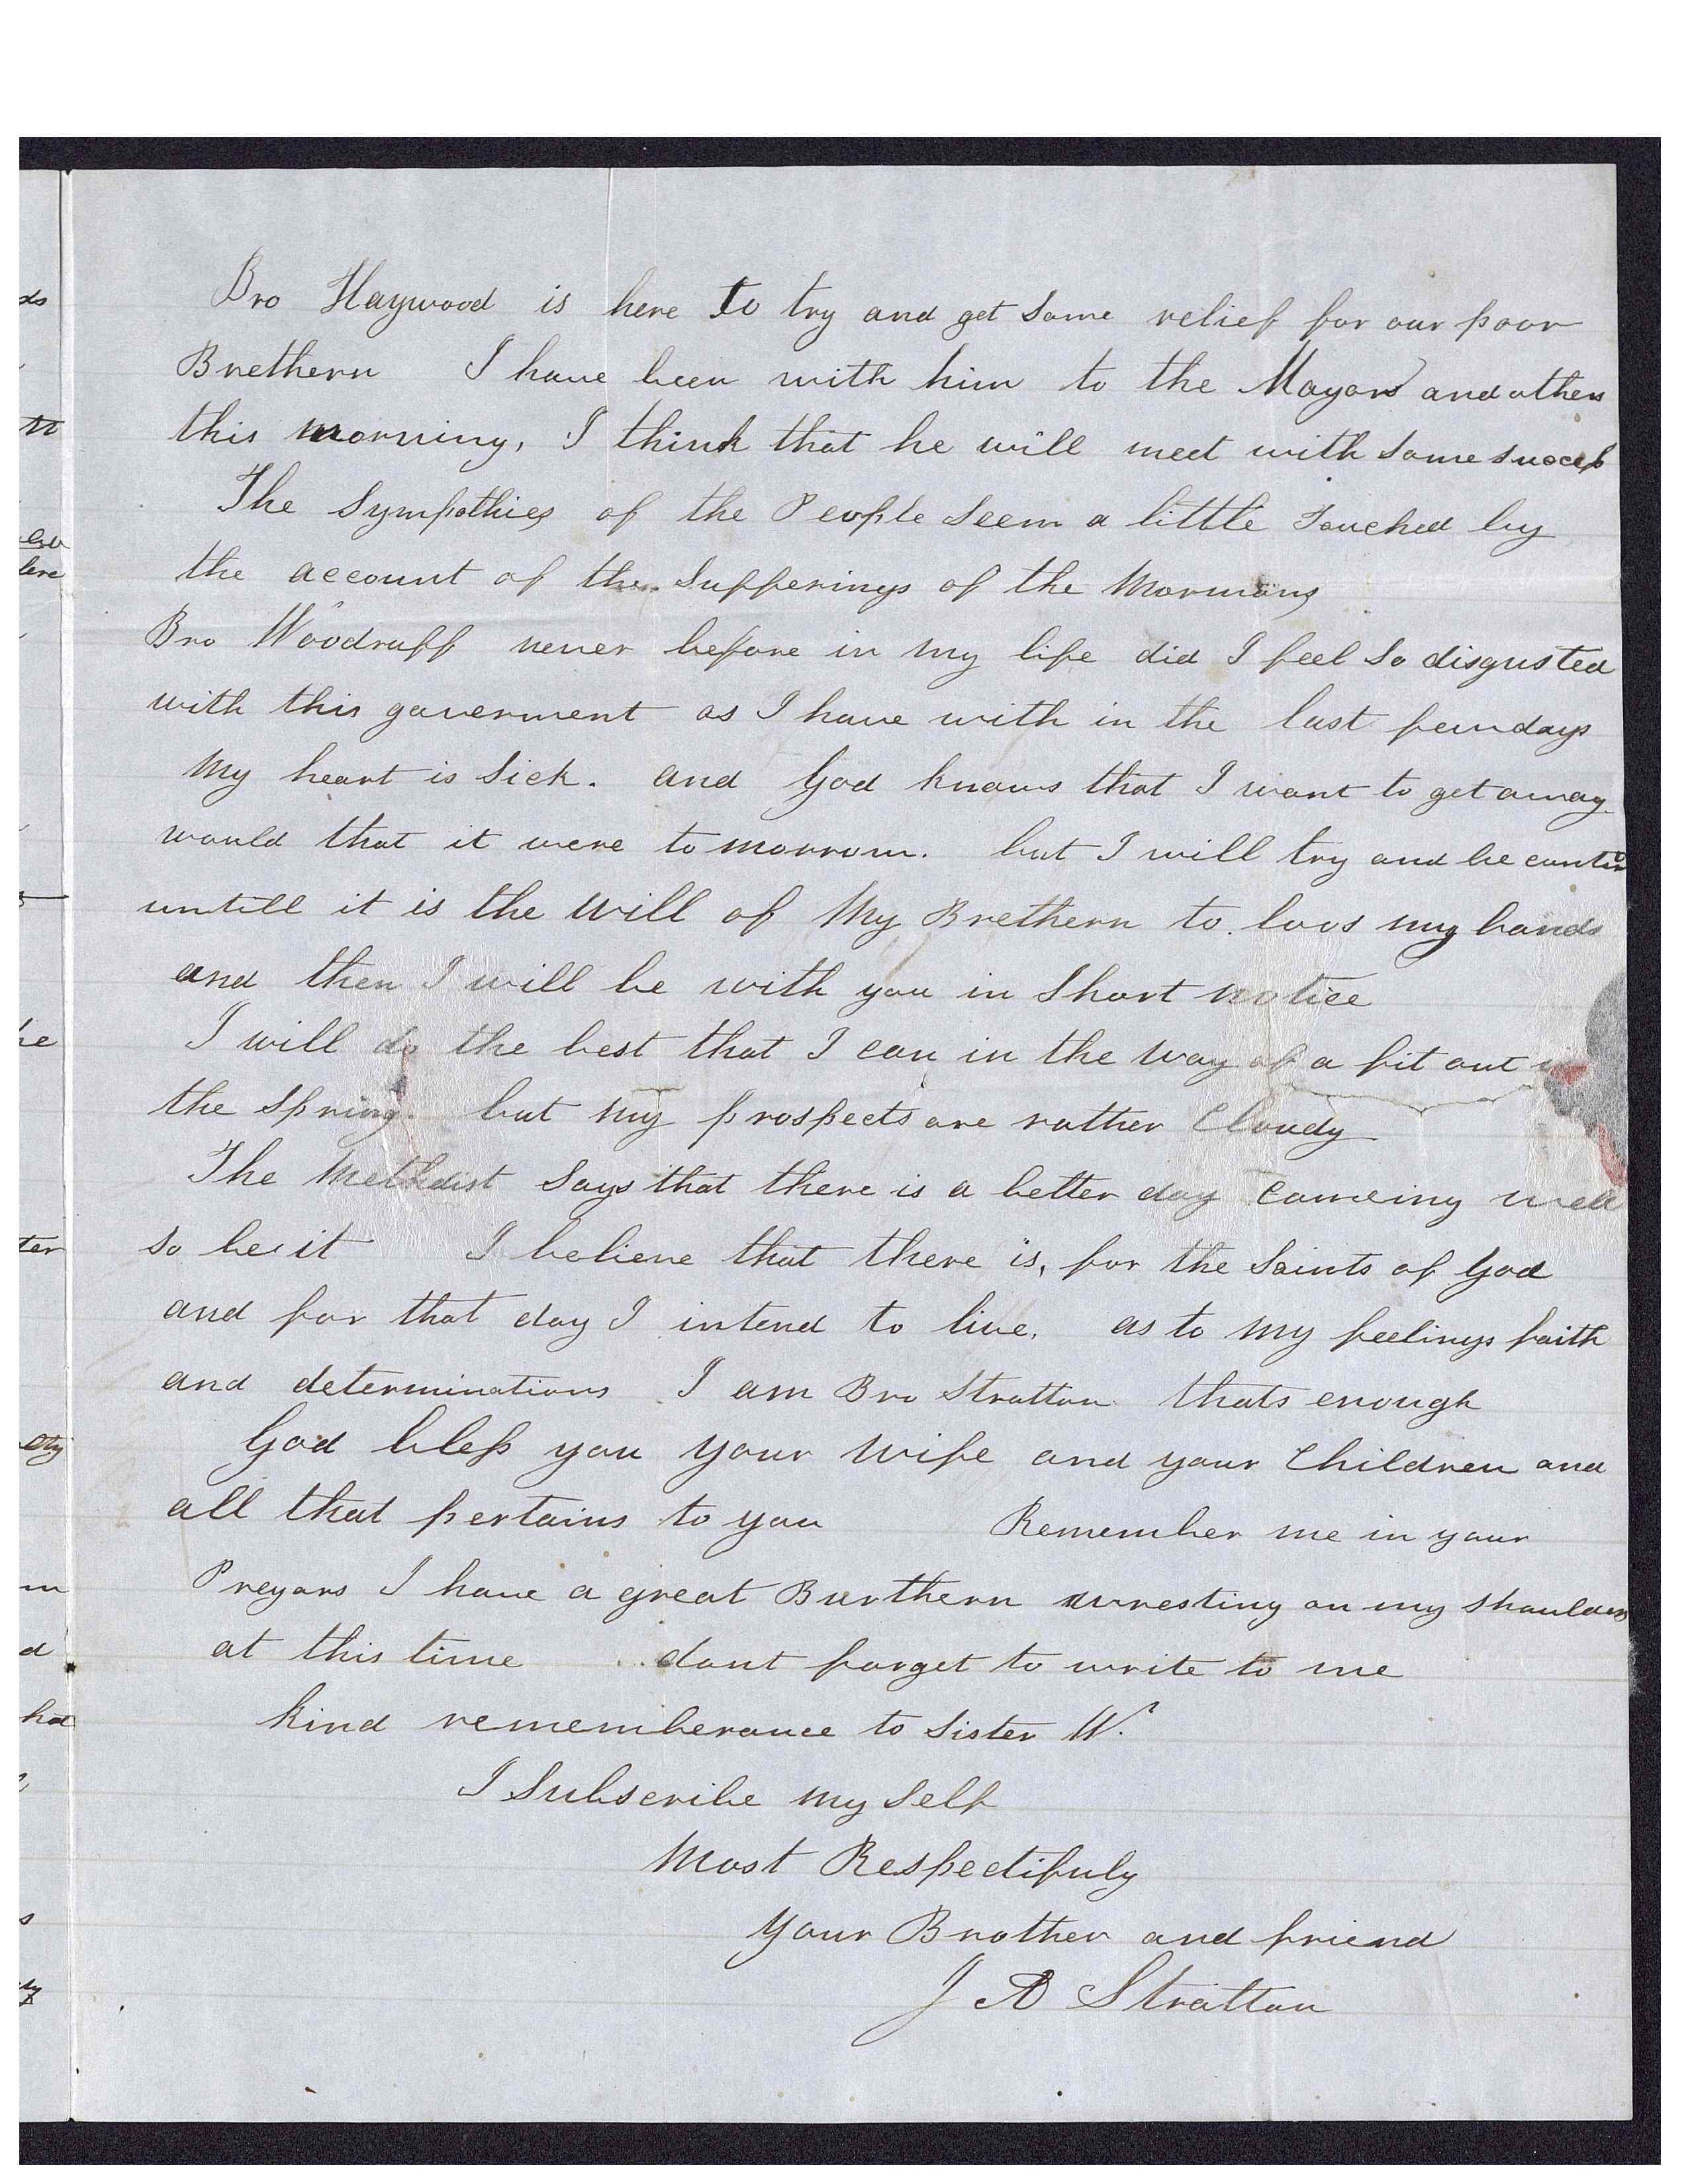 Bro Haywood is here to try and get Some relief for our poor
Brethern I have been with him to the Mayors and others
this morning, I think that he will meet with Some Sucess
The Sympothies of the People Seem a little Touched by
the account of the Sufferings of the Mormons
Bro Woodruff never before in my life did I feel So disgusted
with this goverment as I have with in the last few days
My heart is Sick. and God knows that I want to get away
would that it were to morrow. but I will try and be
untill it is the Will of My Brethern to loos my bands
and then I will be with you in Short notice
I will do the best that I can in the way of a fit out in
the Spring. but my prospects are rather Cloudy
The Methdist Says that there is a better day Comeing well
So be it I believe that there is, for the Saints of God
and for that day I intend to live. as to my feelings faith
and determinations I am Bro Stratton thats enough
God bless you your wife and your Children and
all that pertains to you Remember me in your
Preyars I have a great Burthern resting on my shoulders
at this time dont forget to write to me
kind rememberance to Sister W.
I Subscribe my Self
Most Respectifuly
Your Brother and friend
J A Stratton